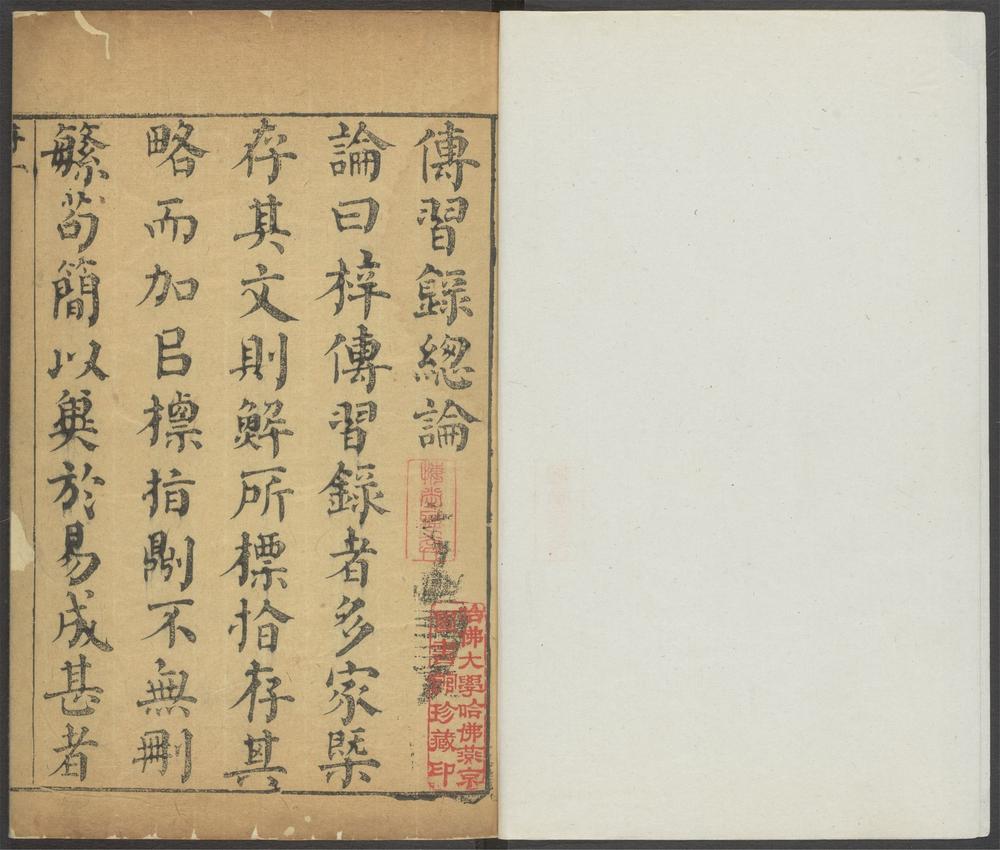 傳習錄總論
論曰梓傳習錄者多家槩
存其文則鮮所標拾存其
略而加㠯標指劘不無刪
緐茍簡以兾於易成甚者
哈佛大學哈佛燕京
圖書館珍藏印